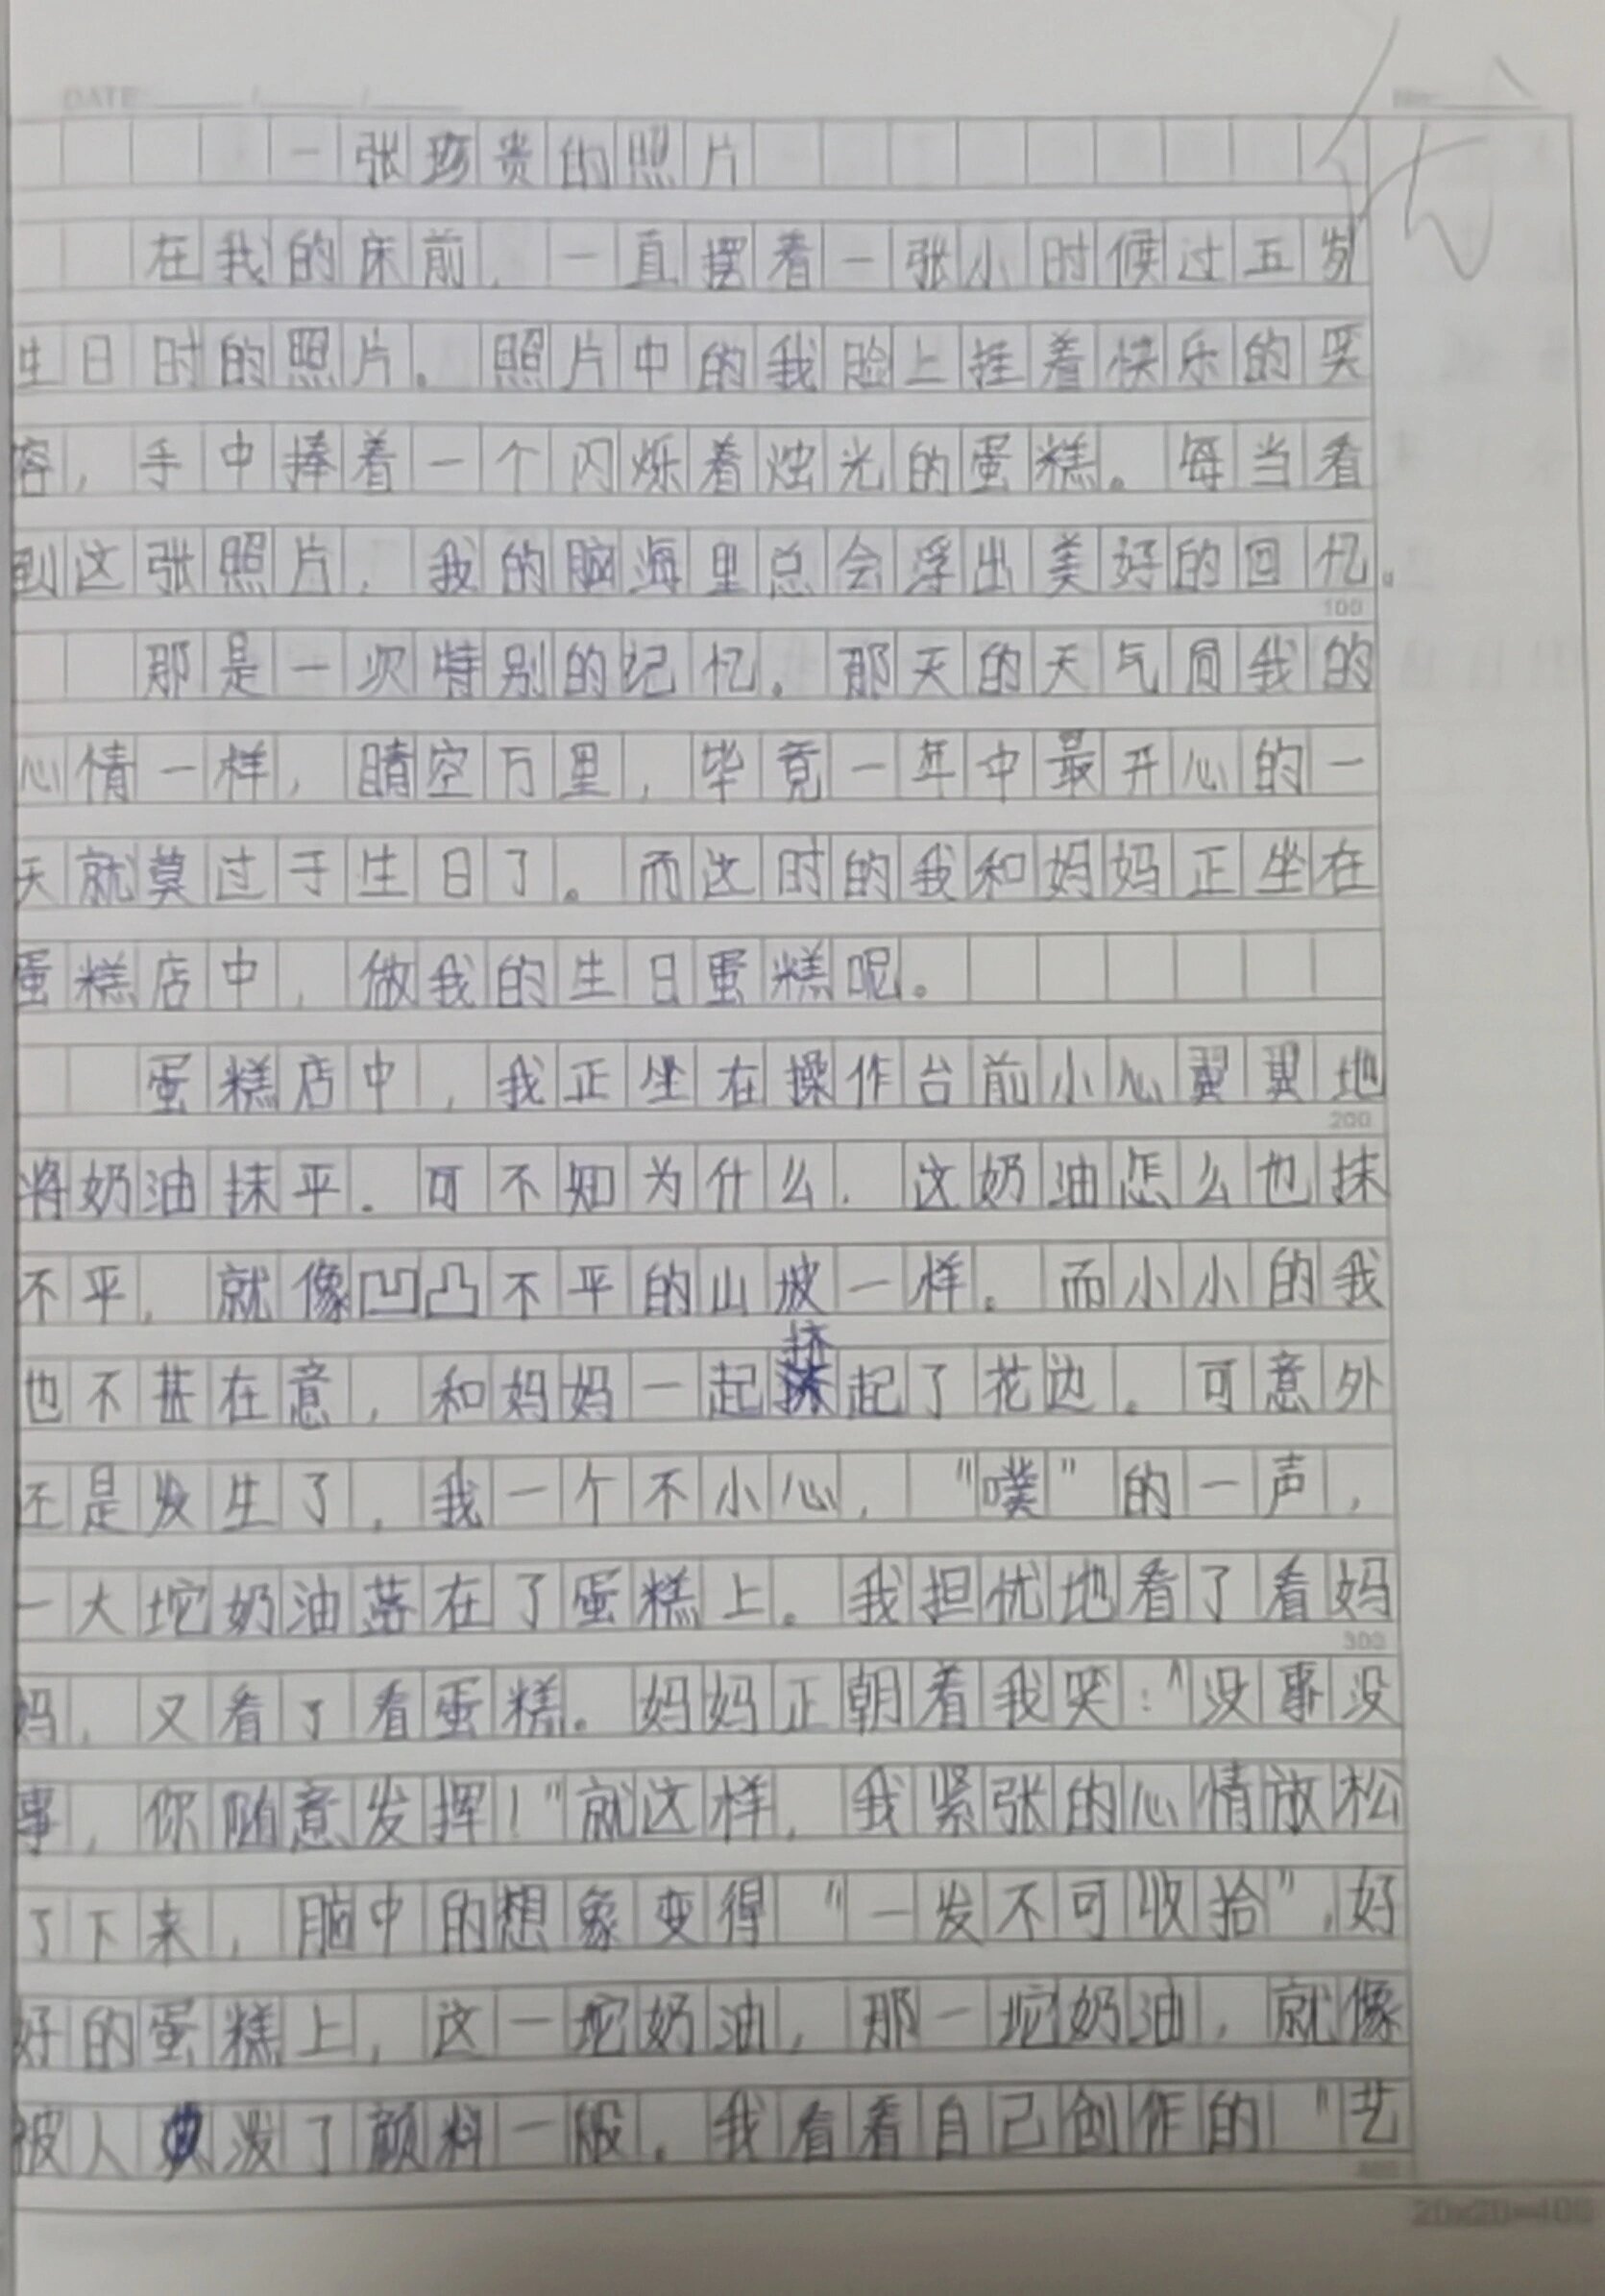 DATE / /
一张珍贵的照片
在我的床前，一直摆着一张小时候过五岁
生日时的照片。照片中的我脸上挂着快乐的笑
容，手中捧着一个闪烁着烛光的蛋糕。每当看
到这张照片，我的脑海里总会浮出美好的回忆。
100
那是一次特别的记忆。那天的天气同我的
心情一样，晴空万里，毕竟一年中最开心的一
天就莫过于生日了。而这时的我和妈妈正坐在
蛋糕店中，做我的生日蛋糕呢。
蛋糕店中，我正坐在操作台前小心翼翼地
200
将奶油抹平。可不知为什么，这奶油怎么也抹
不平，就像凹凸不平的山坡一样。而小小的我
也不甚在意，和妈妈一起挤起了花边。可意外
还是发生了，我一个不小心，"噗"的一声，
一大坨奶油落在了蛋糕上。我担忧地看了看妈
300
妈，又看了看蛋糕。妈妈正朝着我笑："没事没
事，你随意发挥！"就这样，我紧张的心情放松
了下来，脑中的想象变得"一发不可收拾"，好
好的蛋糕上，这一坨奶油，那一坨奶油，就像
被人泼了颜料一般。我看着自己创作的"艺
400
20x20=400